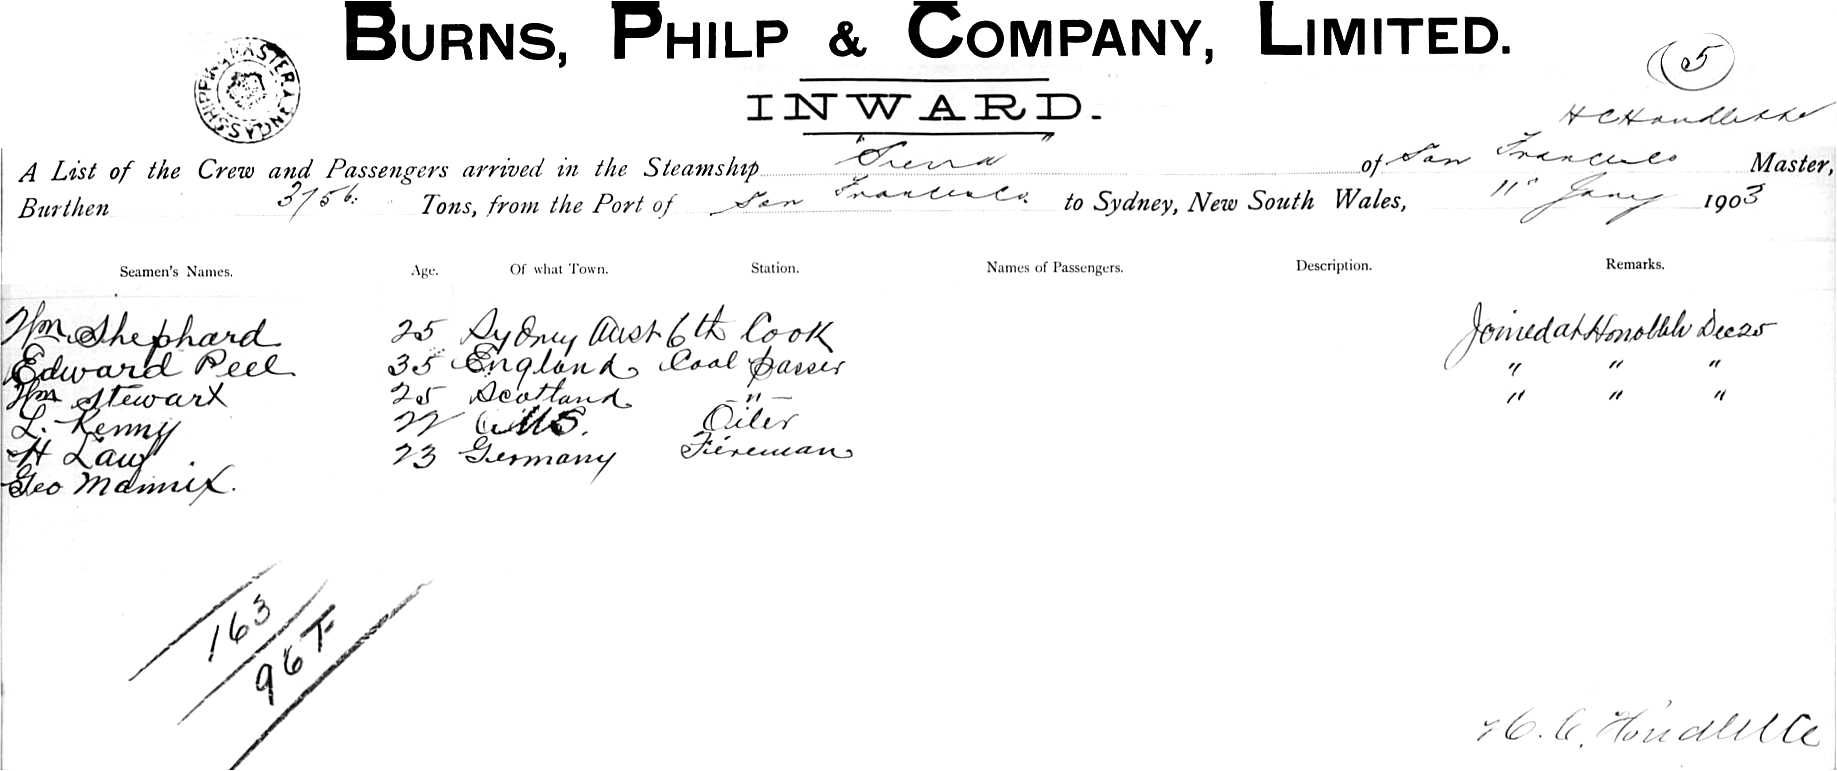 BURNS, PHILP & COMPANY, LIMITED.
5
INWARD.
A List of the Crew and Passengers arrived in the Steamship "Sierra" of San Francisco Master,
Burthen 3756. Tons, from the Port of San Francisco to Sydney, New South Wales, 11" Jany 1903
Seamen's Names. Age. Of what Town. Station. Names of Passengers. Description. Remarks.
Wm Shephard 25 Sydney Aust 6th Cook Joined at Honolulu Dec 25
Edward Peel 35 England Coal passer " " "
Wm Stewart 25 Scotland -"- " " "
L. Kenny 22 U.S. Oiler
H Law 23 Germany Fireman
Geo Mannix.
163
96T